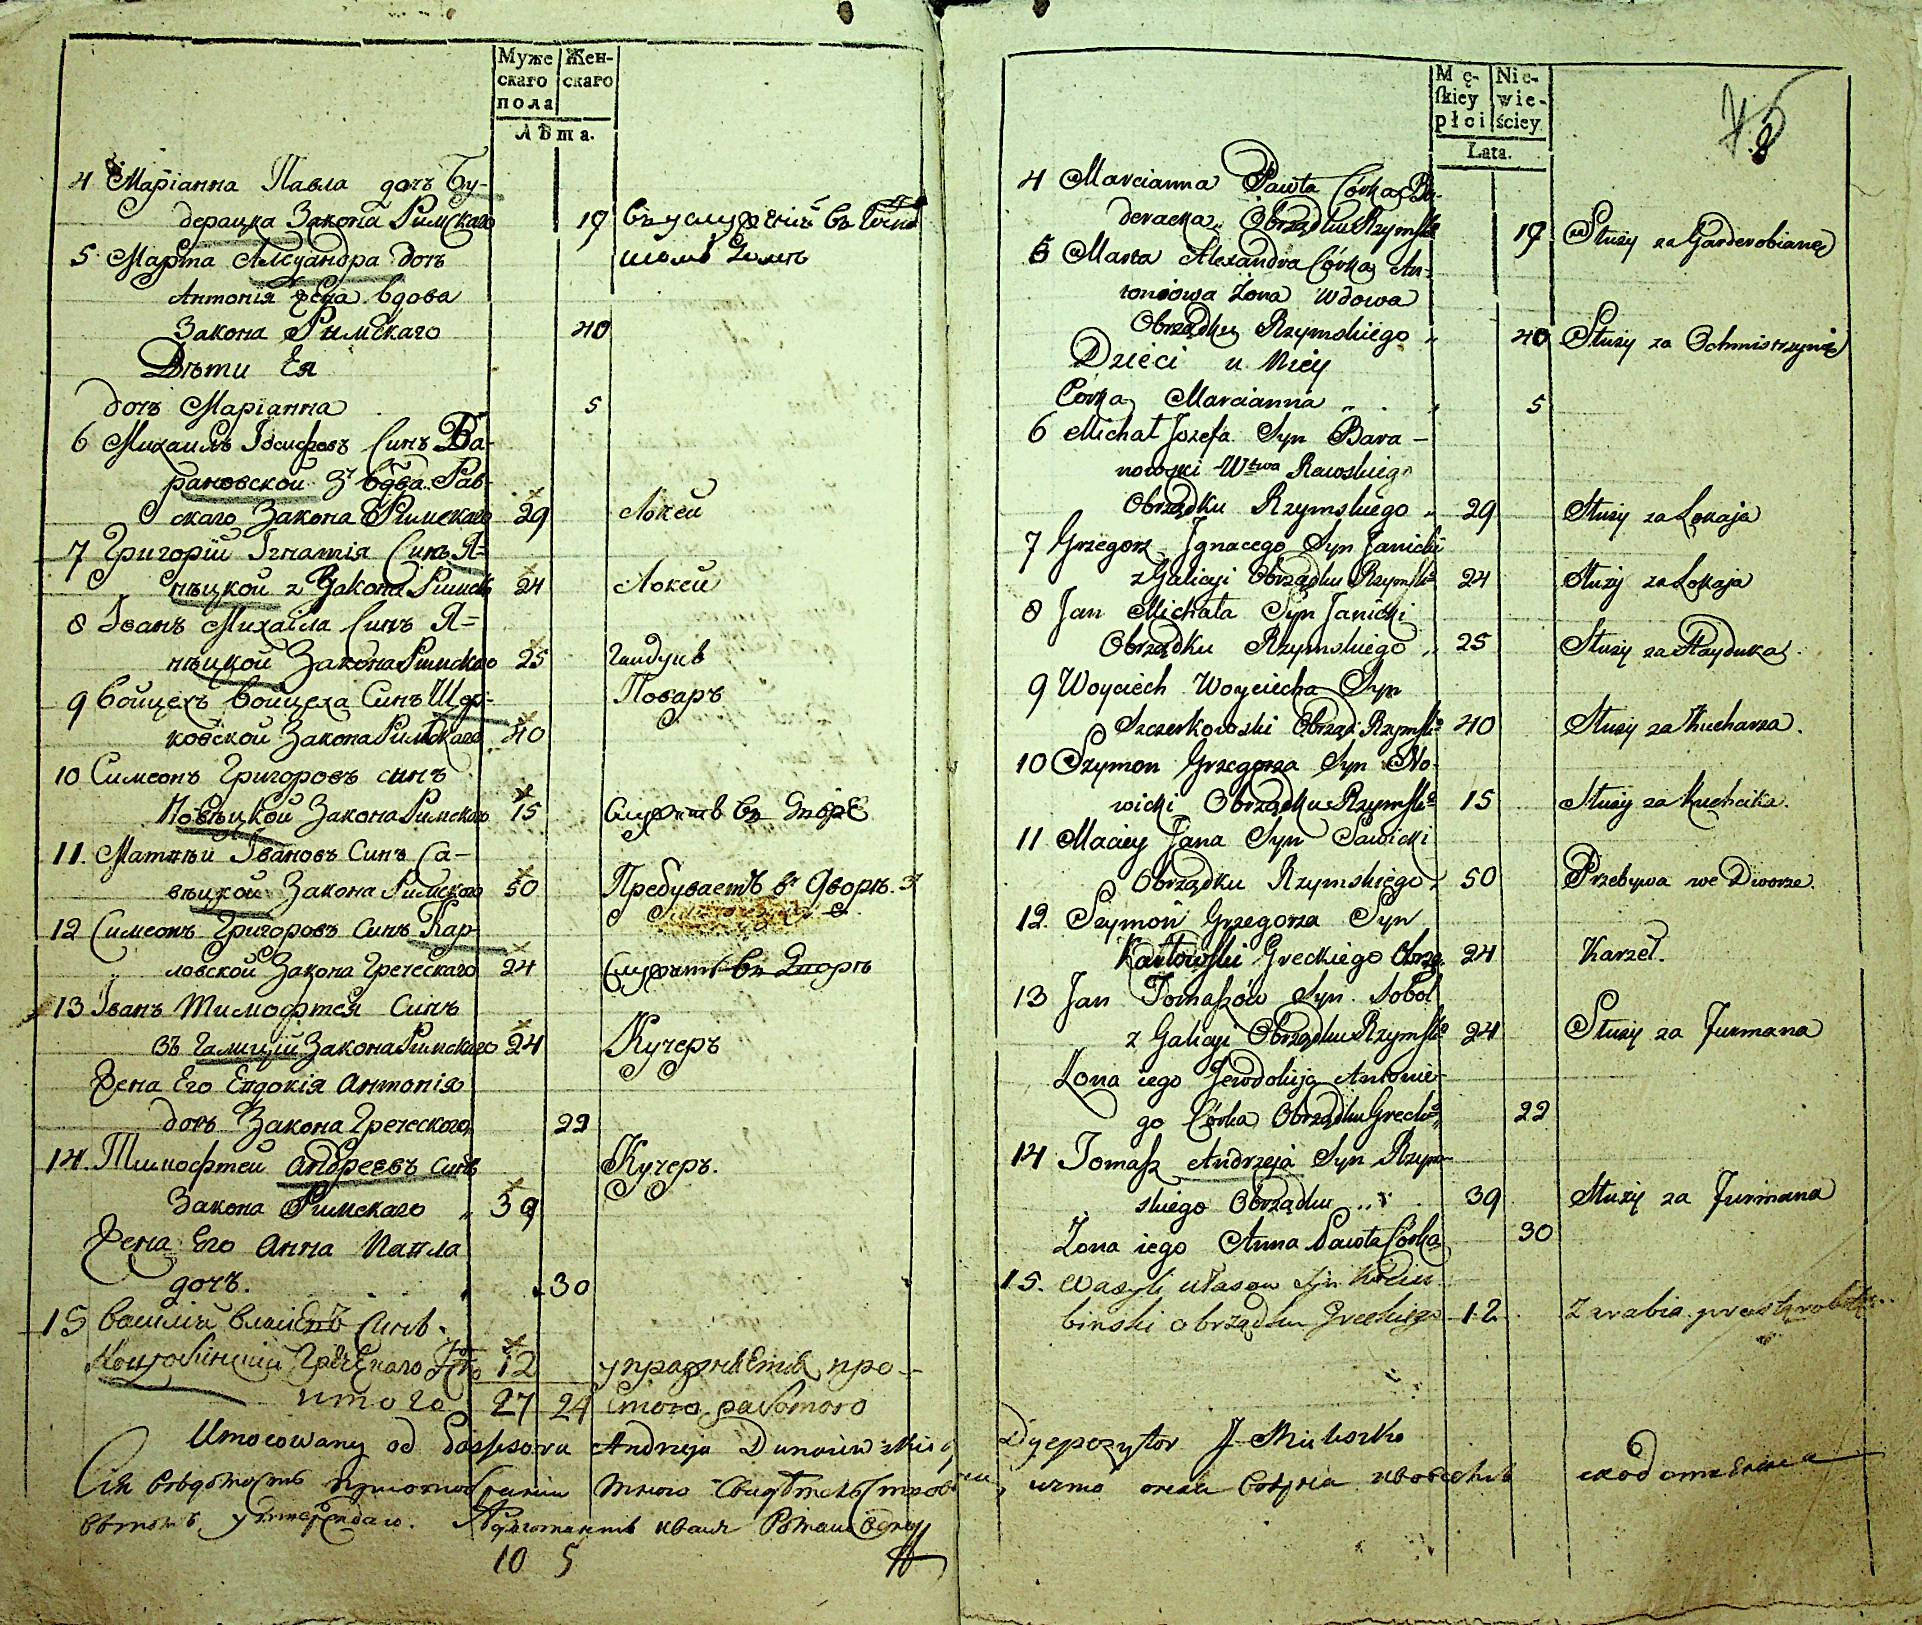 Муже Жен-
скаго скаго
пола
Лѣта.
4 Маріанна Павла дочь Бу-
дерацка Закона Римскаго 19 въ услуженіи въ
5 Марта Алеѯандра дочь
Антонія жена вдова
Закона Римскаго 40
Дѣти Ея
дочь Маріанна 5
6 Михаилъ Іосифовъ Синъ Ба-
рановской Рав-
скаго Закона Римскаго 29 Локей
7 Григорій Игнатія Синъ Я=
нѣцкой Закона Римск 24 Локей
8 Іванъ Михаила Синъ Я=
нѣцкой Закона Римскаго 25 Гайдукъ
9 Войцехъ Войцеха Синъ Щер- Поваръ
ковской Закона Римскаго 40
10 Симеонъ Григоровъ синъ
Новѣцкой Закона Римскаго 15 Служитъ въ Дворѣ
11. Матвѣй Івановъ Синъ Са-
вѣцкой Закона Римскаго 50 Пребуваетъ в Дворѣ.
12 Симеонъ Григоровъ Синъ Кар-
ловской Закона Греческаго 24 Служитъ въ Дворѣ
13 Іванъ Тимофтея Синъ
въ Галиціи Закона Римскаго 24 Кучеръ
Жена Его Евдокія Антонія
дочь Закона Греческого 22
14. Тимофтей Андреевъ синъ Кучеръ.
Закона Римскаго 39
Жена Его Анна Павла
дочъ. 30
15 Василій Синъ
Греческаго 12 упражняется про-
итого 27 24 стою работою
Umocowany od Possesora Andrzeja
10 5
Mę- Nie-
ſkiey wie-
płci ściey
Lata.
4 Marcianna Pawła Córka Bu-
deracka Obrządku Rzymsko 19 Służy za Garderobianę
5 Marta Alexandra Córka An-
toniowa Żona Wdowa
Obrządku Rzymskiego 40 Służy za Ochmistrzynię
Dzieci u Niey
Córka Marcianna 5
6 Michał Jozefa Syn Bara-
nowski Wtwa Rawskiego
Obrządku Rzymskiego 29 Służy za Lokaja
7 Grzegorz Ignacego Syn Janicki
z Galicyi Obrządku Rzymsko 24 Służy za Lokaja
8 Jan Michała Syn Janicki
Obrządku Rzymskiego 25 Służy za Hayduka.
9 Woyciech Woyciecha Syn
Szczerkowski Obrząd Rzymsko 40 Służy za Kucharza.
10 Szymon Grzegorza Syn No-
wicki Obrządku Rzymsko 15 Służy za Kuchcika.
11 Maciey Jana Syn Sawicki
Obrządku Rzymskiego 50 Przebywa we Dworze.
12. Szymon Grzegorza Syn
Karłowski Greckiego Obrzą. 24 Karzeł.
13 Jan Tomaszów Syn Sobol
z Galicyi Obrządku Rzymsko 24 Służy za Furmana
Żona iego Jewdokija Antonie-
go Córka Obrządku Grecko 22
14 Tomasz Andrzeja Syn Rzym-
skiego Obrządku 39 Służy za Furmana
Żona iego Anna Pawła Córka 30
15. Wasyli Własow Syn
binski obrządku Greckiego 12 Zarabia